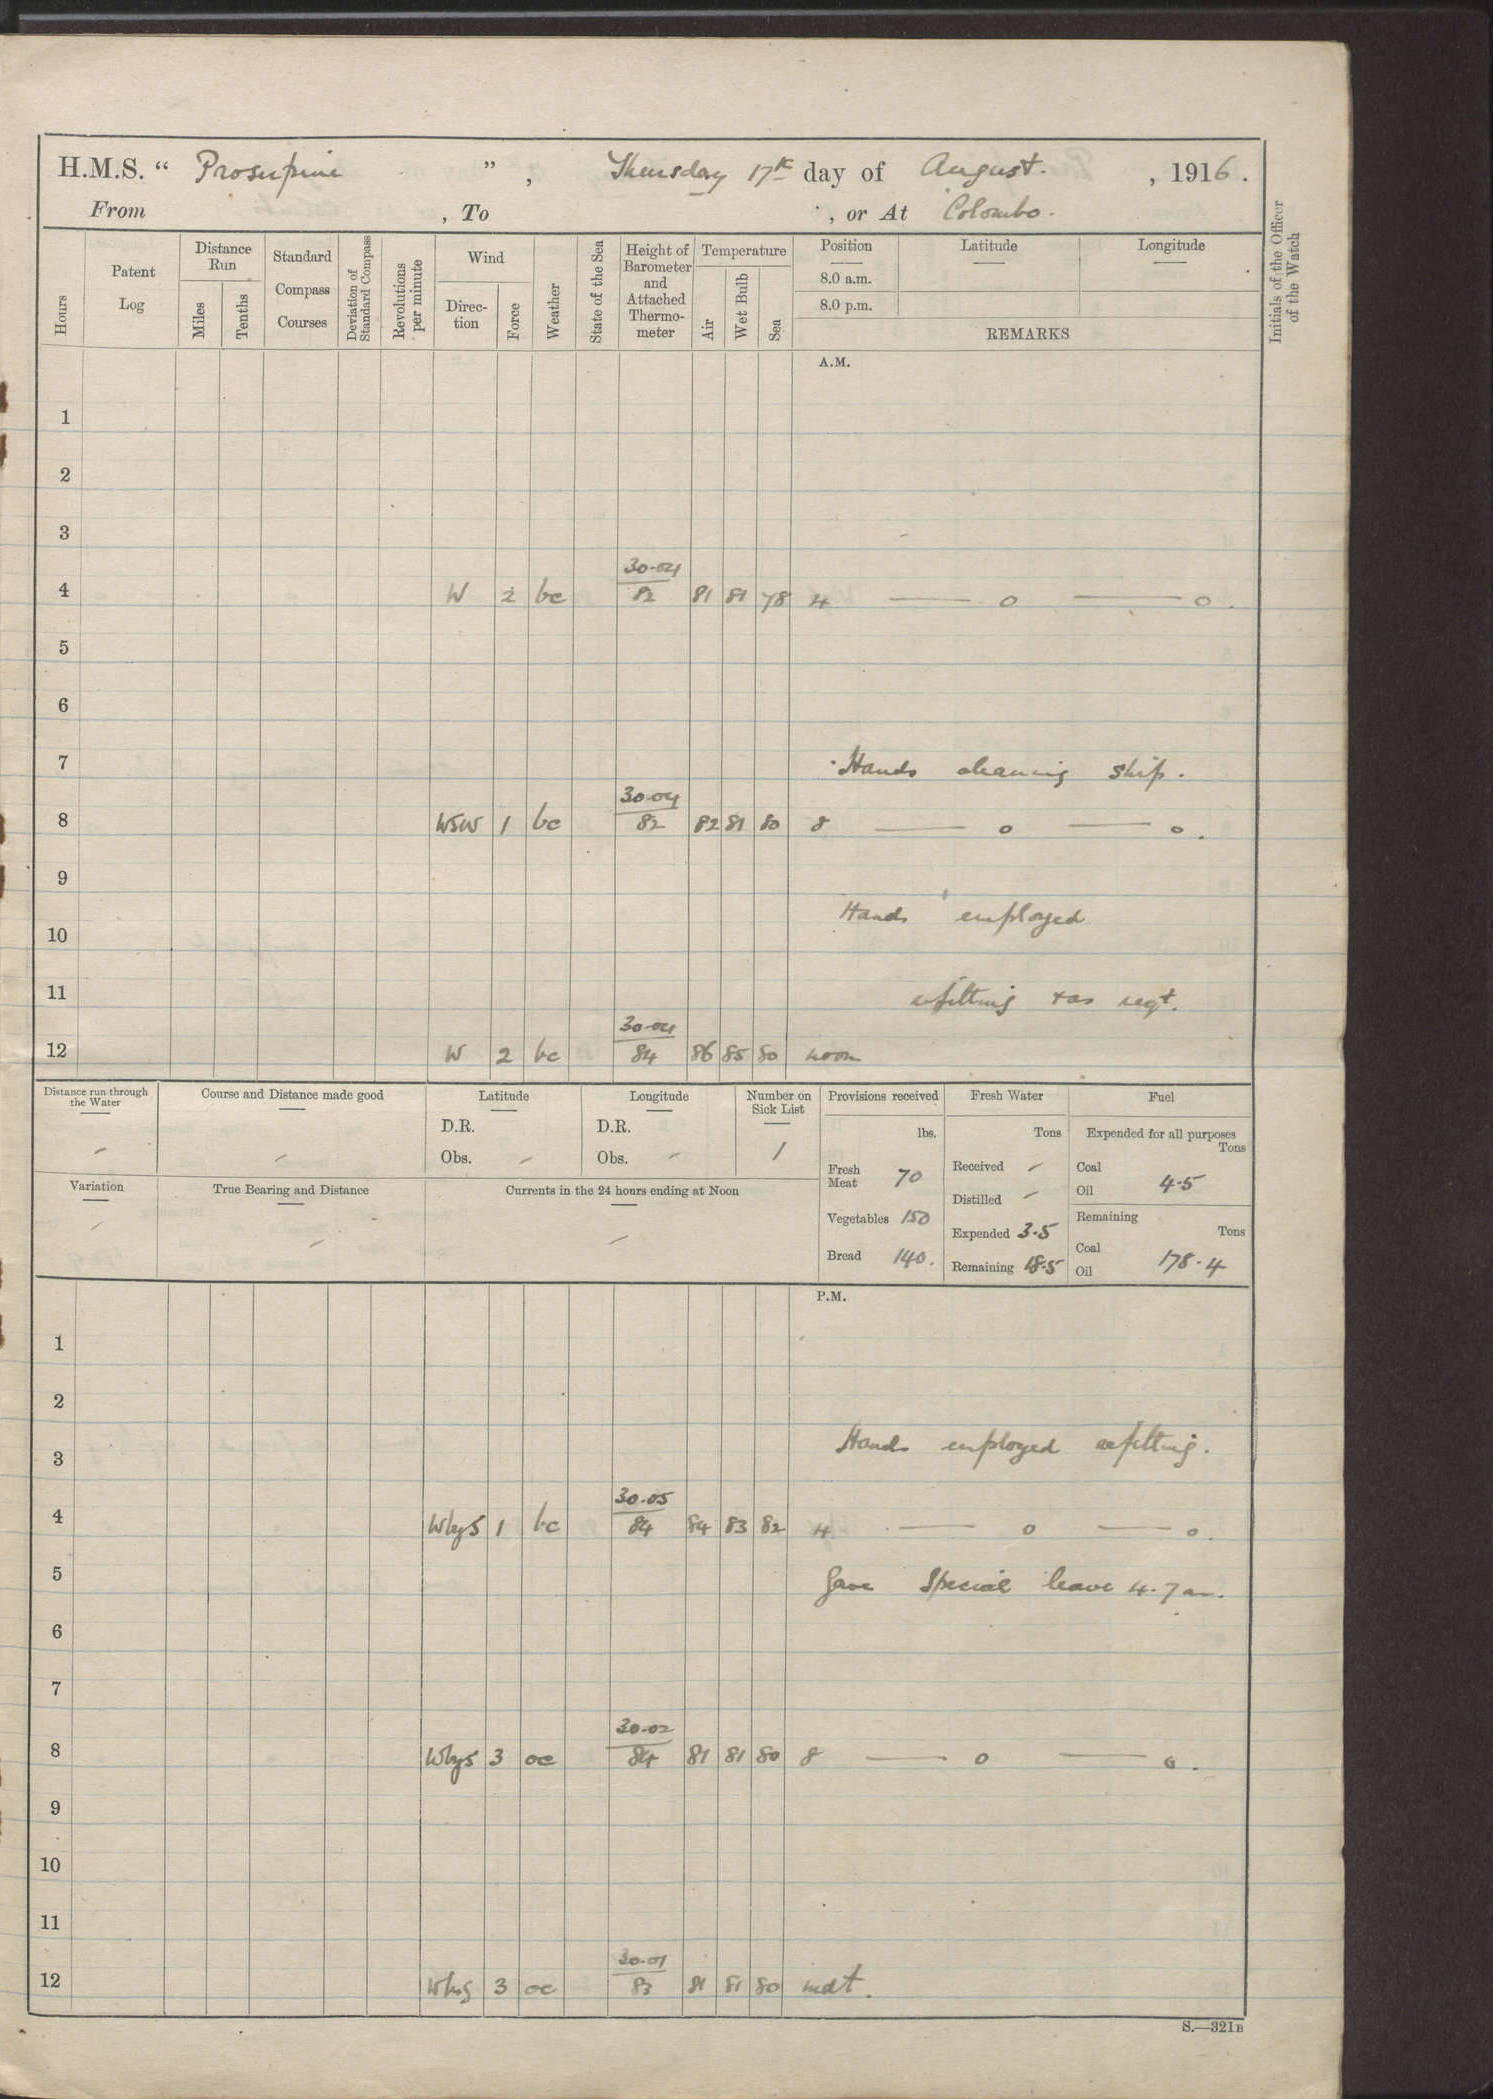 H.M.S. “ Proserpine ” , Thursday 17th day of August. , 1916.
From , To , or At Colombo.
Hours
Patent Log
Distance Run
Miles
Tenths
Standard Compass Courses
Deviation of Standard Compass
Revolutions per minute
Wind
Direc- tion
Force
Weather
State of the Sea
Height of Barometer and Attached Thermo- meter
Temperature
Air
Wet Bulb
Sea
Position Latitude Longitude
8.0 a.m.
8.0 p.m.
REMARKS
Initials of the Officer of the Watch
A.M.
1
2
3
30.04
4 W 2 bc 82 81 81 78 4 — o — o.
5
6
7 Hands cleaning ship.
30.04
8 WSW 1 bc 82 82 81 80 8 — o — o.
9
Hands employed
10
11 refitting + as reqt.
30.04
12 W 2 bc 84 86 85 80 noon
Distance run through the Water
-
Course and Distance made good
-
Latitude
D.R.
Obs. -
Longitude
D.R.
Obs. -
Number on Sick List
1
Variation
-
True Bearing and Distance
-
Currents in the 24 hours ending at Noon
-
Provisions received
lbs.
Fresh Meat 70
Vegetables 150
Bread 140.
Fresh Water
Tons
Received -
Distilled -
Expended 3.5
Remaining 18.5
Fuel
Expended for all purposes
Tons
Coal
Oil 4.5
Remaining
Tons
Coal
Oil 178.4
P.M.
1
2
3 Hands employed refitting.
30.05
4 WbyS 1 bc 84 84 83 82 4 — o — o.
5 Gave special leave 4.7 am.
6
7
30.02
8 WbyS 3 oc 84 81 81 80 8 — o — o.
9
10
11
30.01
12 WbyS 3 oc 83 81 81 80 mdt.
S.—321B